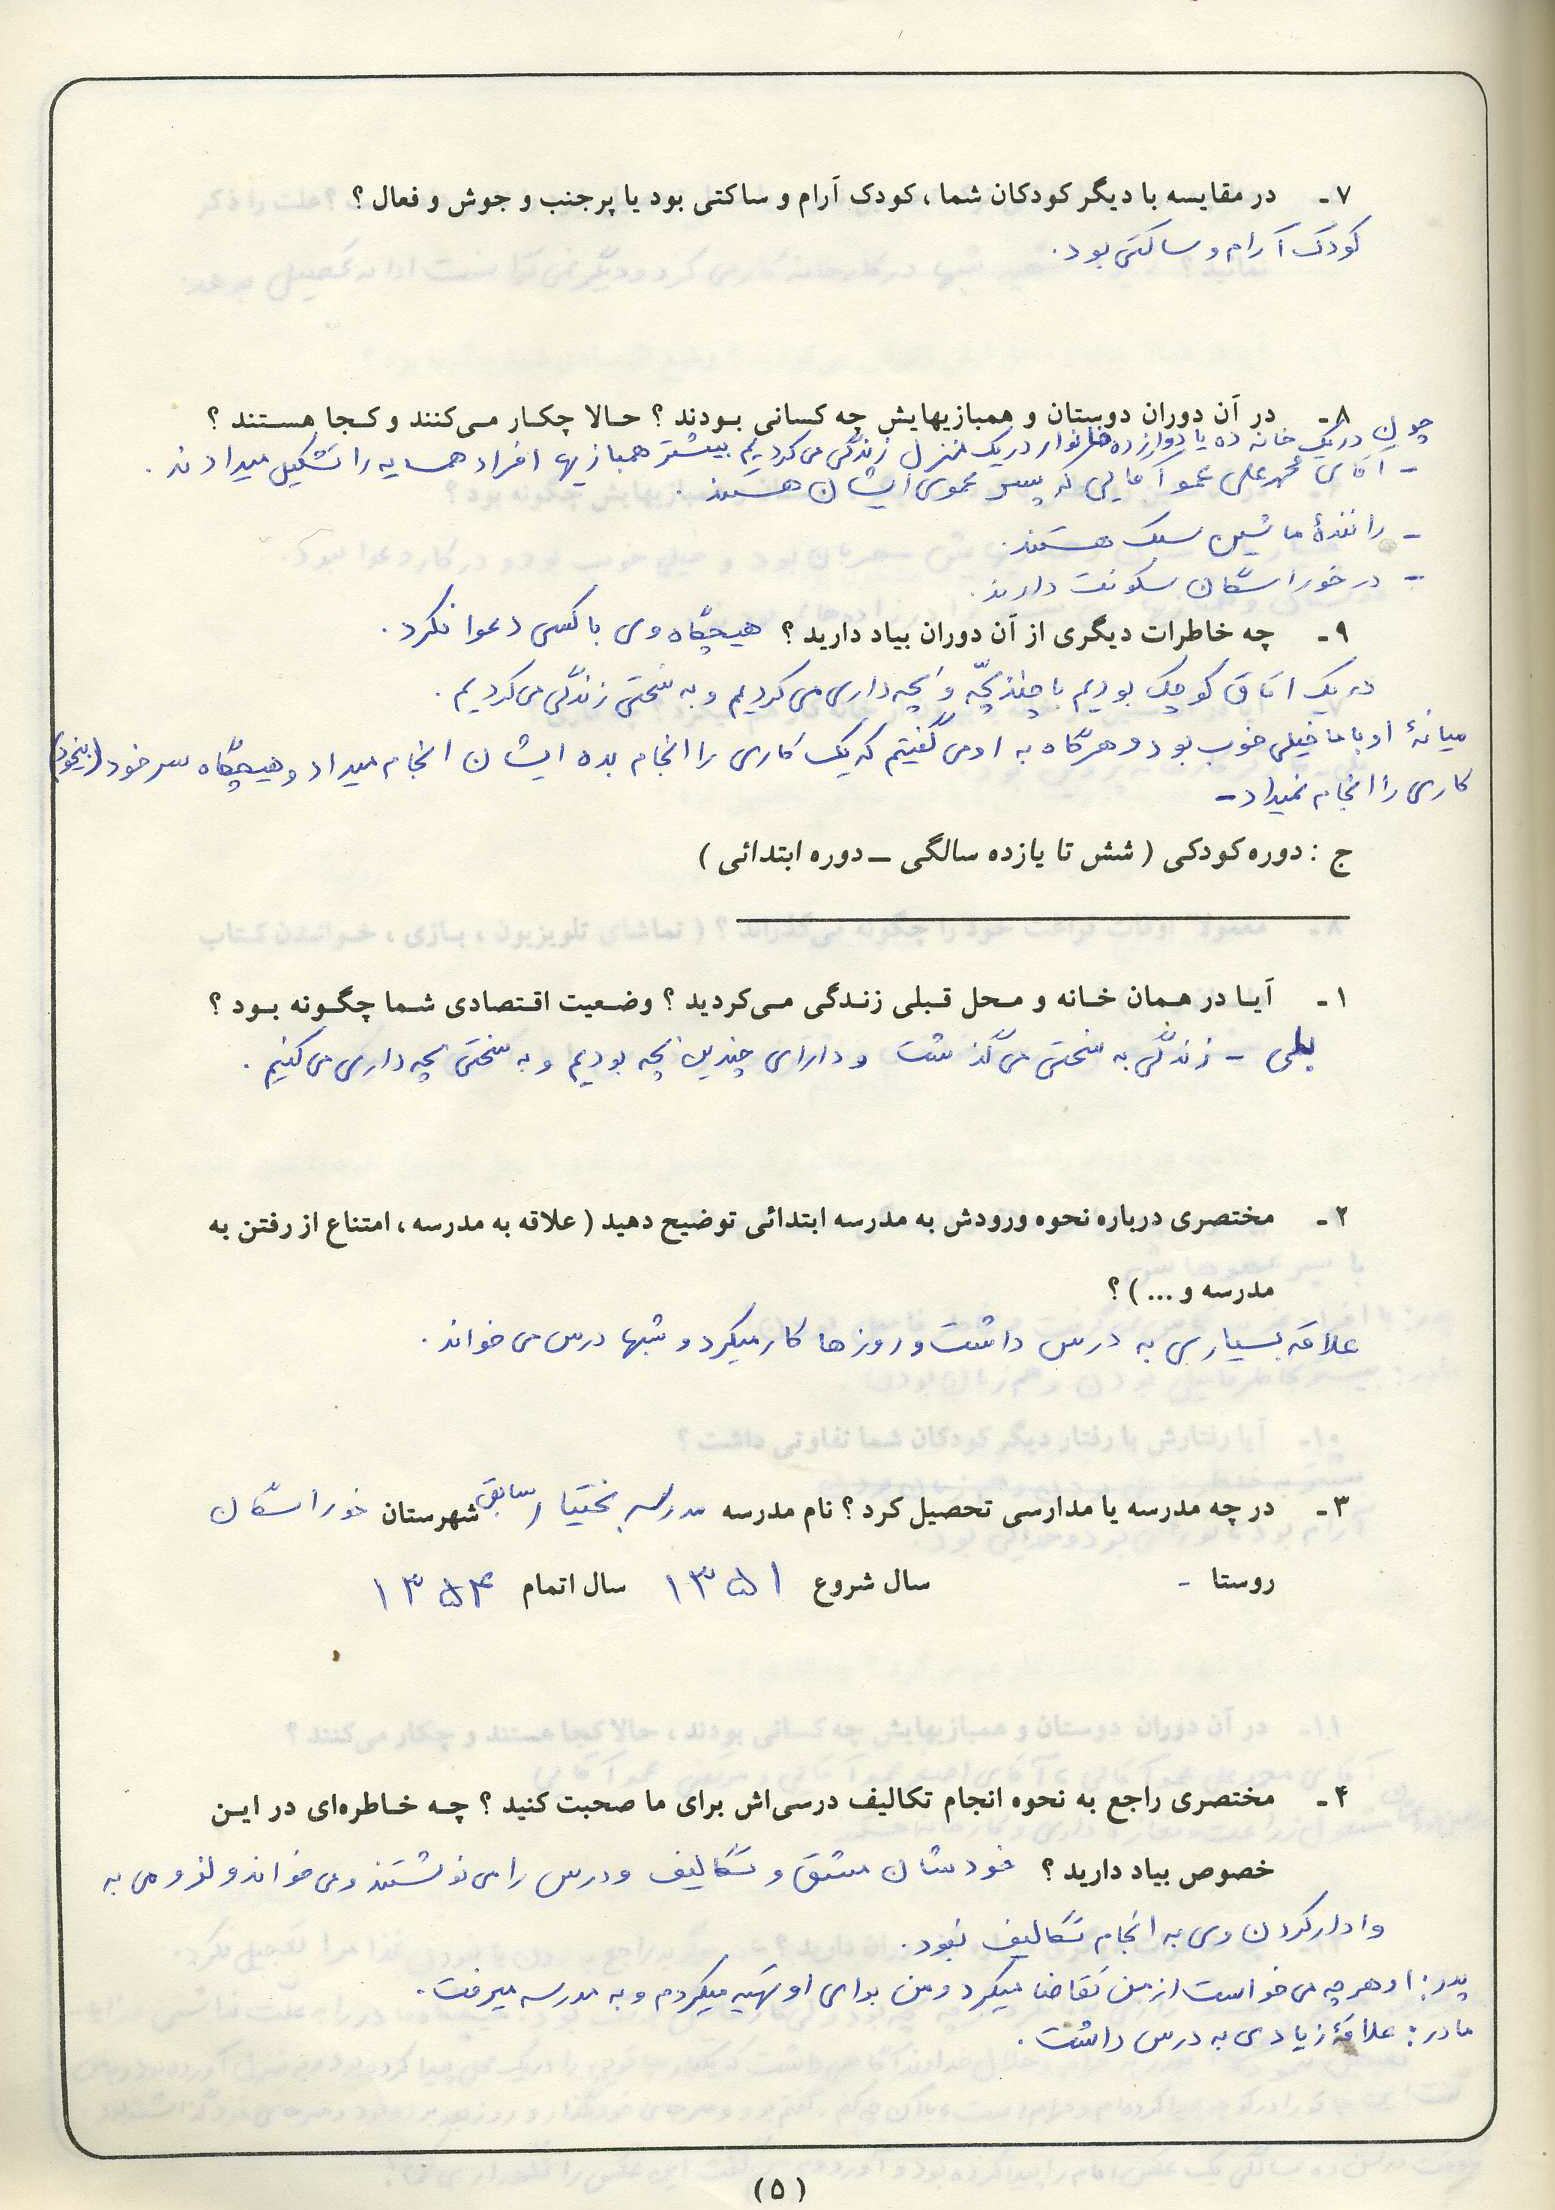 ۷ - در مقایسه با دیگر کودکان شما ، کودک آرام و ساکتی بود یا پرجنب و جوش و فعال ؟
کودک آرام و ساکتی بود .
۸ - در آن دوران دوستان و همبازیهایش چه کسانی بودند ؟ حالا چکار می‌کنند و کجا هستند ؟
چون در یک خانه ده یا دوازده خانوار در یک منزل زندگی می کردیم بیشتر همبازیها افراد همسایه را تشکیل میدادند .
- آقای محمدعلی عمو آقایی که پسر عموی ایشان هستند .
- رانندهٔ ماشین سبک هستند .
- در خوراسگان سکونت دارند .
۹ - چه خاطرات دیگری از آن دوران بیاد دارید ؟ هیچگاه وی با کسی دعوا نکرد .
در یک اتاق کوچک بودیم با چند بچّه و بچه داری می کردیم و به سختی زندگی می کردیم .
میانهٔ او با ما خیلی خوب بود و هرگاه به او می گفتیم که یک کاری را انجام بده ایشان انجام میداد و هیچگاه سر خود (بیخود)
کاری را انجام نمیداد -
ج : دوره کودکی ( شش تا یازده سالگی ـ دوره ابتدائی )
۱ - آیا در همان خانه و محل قبلی زندگی می‌کردید ؟ وضعیت اقتصادی شما چگونه بود ؟
بلی - زندگی به سختی می گذشت و دارای چندین بچه بودیم و به سختی بچه داری می کنیم .
۲ - مختصری درباره نحوه ورودش به مدرسه ابتدائی توضیح دهید ( علاقه به مدرسه ، امتناع از رفتن به
مدرسه و ... ) ؟
علاقه بسیاری به درس داشت و روزها کار میکرد و شبها درس می خواند .
۳ - در چه مدرسه یا مدارسی تحصیل کرد ؟ نام مدرسه مدرسه بختیار سابق شهرستان خوراسگان
روستا - سال شروع ۱۳۵۱ سال اتمام ۱۳۵۴
۴ - مختصری راجع به نحوه انجام تکالیف درسی‌اش برای ما صحبت کنید ؟ چه خاطره‌ای در این
خصوص بیاد دارید ؟ خودشان مشق و تکالیف و درس را می نوشتند و می خواند و لزومی به
وادار کردن وی به انجام تکالیف نبود .
پدر : او هر چه می خواست از من تقاضا میکرد و من برای او تهیه میکردم و به مدرسه میرفت .
مادر : علاقهٔ زیادی به درس داشت .
( ۵ )